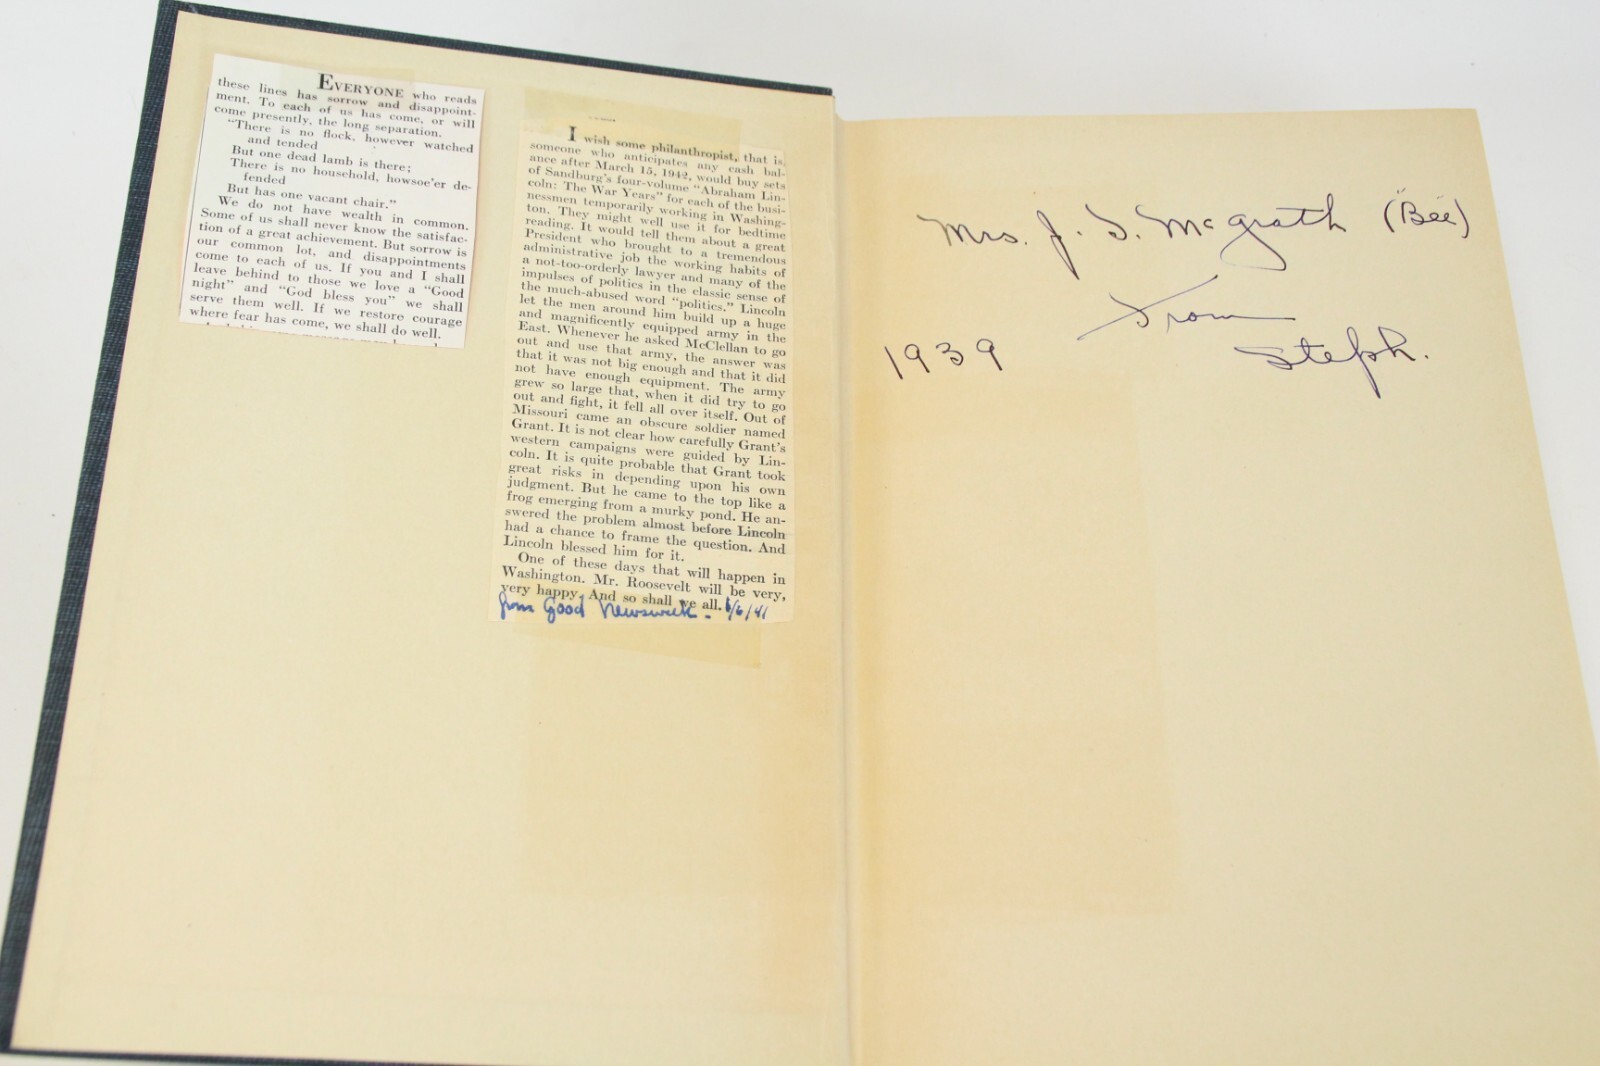 EVERYONE who reads
these lines has sorrow and disappoint-
ment. To each of us has come, or will
come presently, the long separation.
"There is no flock, however watched
and tended
But one dead lamb is there;
There is no household, howsoe'er de-
fended
But has one vacant chair."
We do not have wealth in common.
Some of us shall never know the satisfac-
tion of a great achievement. But sorrow is
our common lot, and disappointments
come to each of us. If you and I shall
leave behind to those we love a "Good
night" and "God bless you" we shall
serve them well. If we restore courage
where fear has come, we shall do well.
I wish some philanthropist, that is,
someone who anticipates any cash bal-
ance after March 15, 1942, would buy sets
of Sandburg's four-volume "Abraham Lin-
coln: The War Years" for each of the busi-
nessmen temporarily working in Washing-
ton. They might well use it for bedtime
reading. It would tell them about a great
President who brought to a tremendous
administrative job the working habits of
a not-too-orderly lawyer and many of the
impulses of politics in the classic sense of
the much-abused word "politics." Lincoln
let the men around him build up a huge
and magnificently equipped army in the
East. Whenever he asked McClellan to go
out and use that army, the answer was
that it was not big enough and that it did
not have enough equipment. The army
grew so large that, when it did try to go
out and fight, it fell all over itself. Out of
Missouri came an obscure soldier named
Grant. It is not clear how carefully Grant's
western campaigns were guided by Lin-
coln. It is quite probable that Grant took
great risks in depending upon his own
judgment. But he came to the top like a
frog emerging from a murky pond. He an-
swered the problem almost before Lincoln
had a chance to frame the question. And
Lincoln blessed him for it.
One of these days that will happen in
Washington. Mr. Roosevelt will be very,
very happy. And so shall we all.
from Good Newsweek. /6/41
Mrs. J. S. McGrath (Bee)
From
1939 Steph.